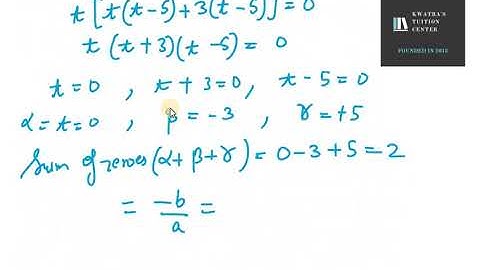 t[t(t-5)+3(t-5)]=0
t(t+3)(t-5)=0
t=0, t+3=0, t-5=0
α=t=0, β=-3, γ=+5
Sum of zeroes(α+β+γ)=0-3+5=2
= -b/a =
KWATRA'S
TUITION
CENTER
FOUNDED IN 2018